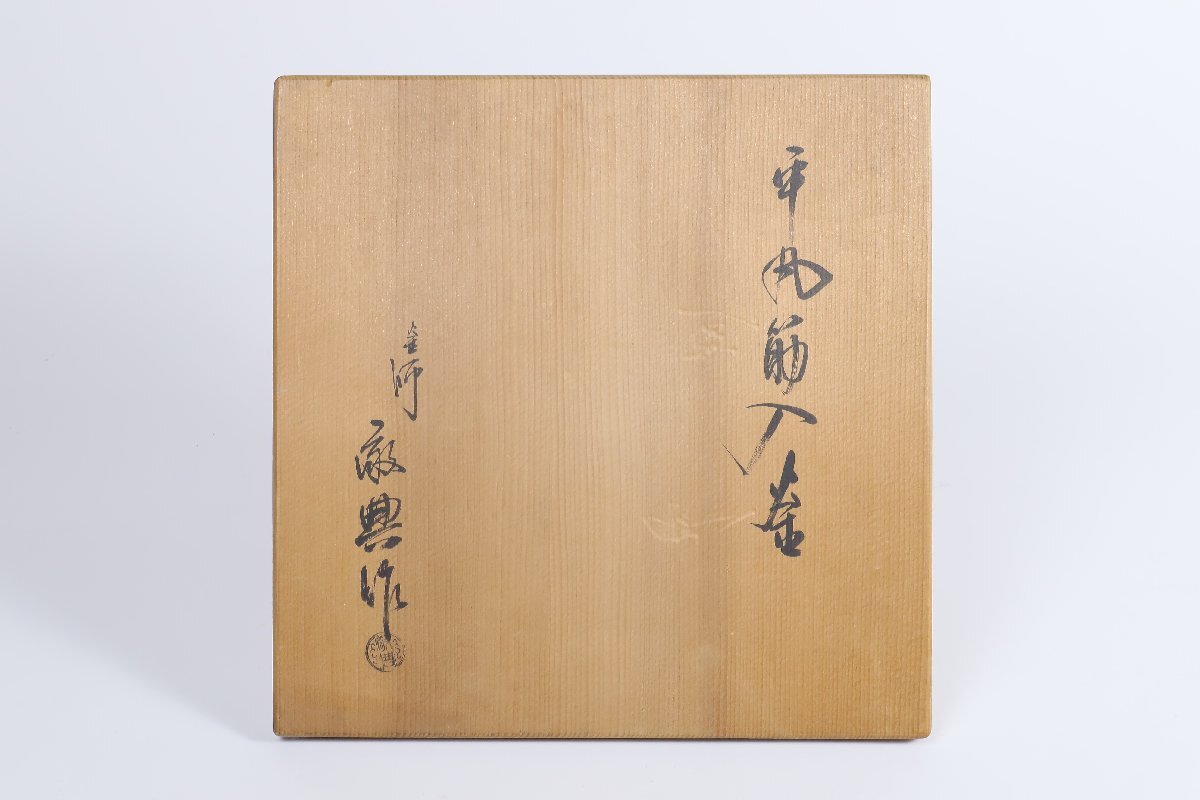 平丸筋入釜
釜師
厳典作